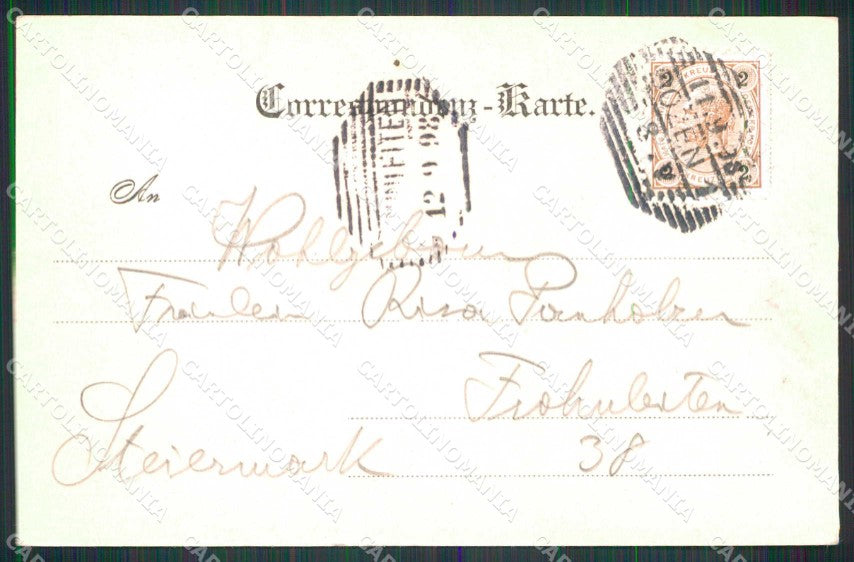 Correspondenz-Karte.
An
Wohlgeboren
Fräulein Risa Pirnholzer
Frohnleiten
Steiermark 38
12 9 98
2 KREUZER 2
2 2
CARTOLINOMANIA